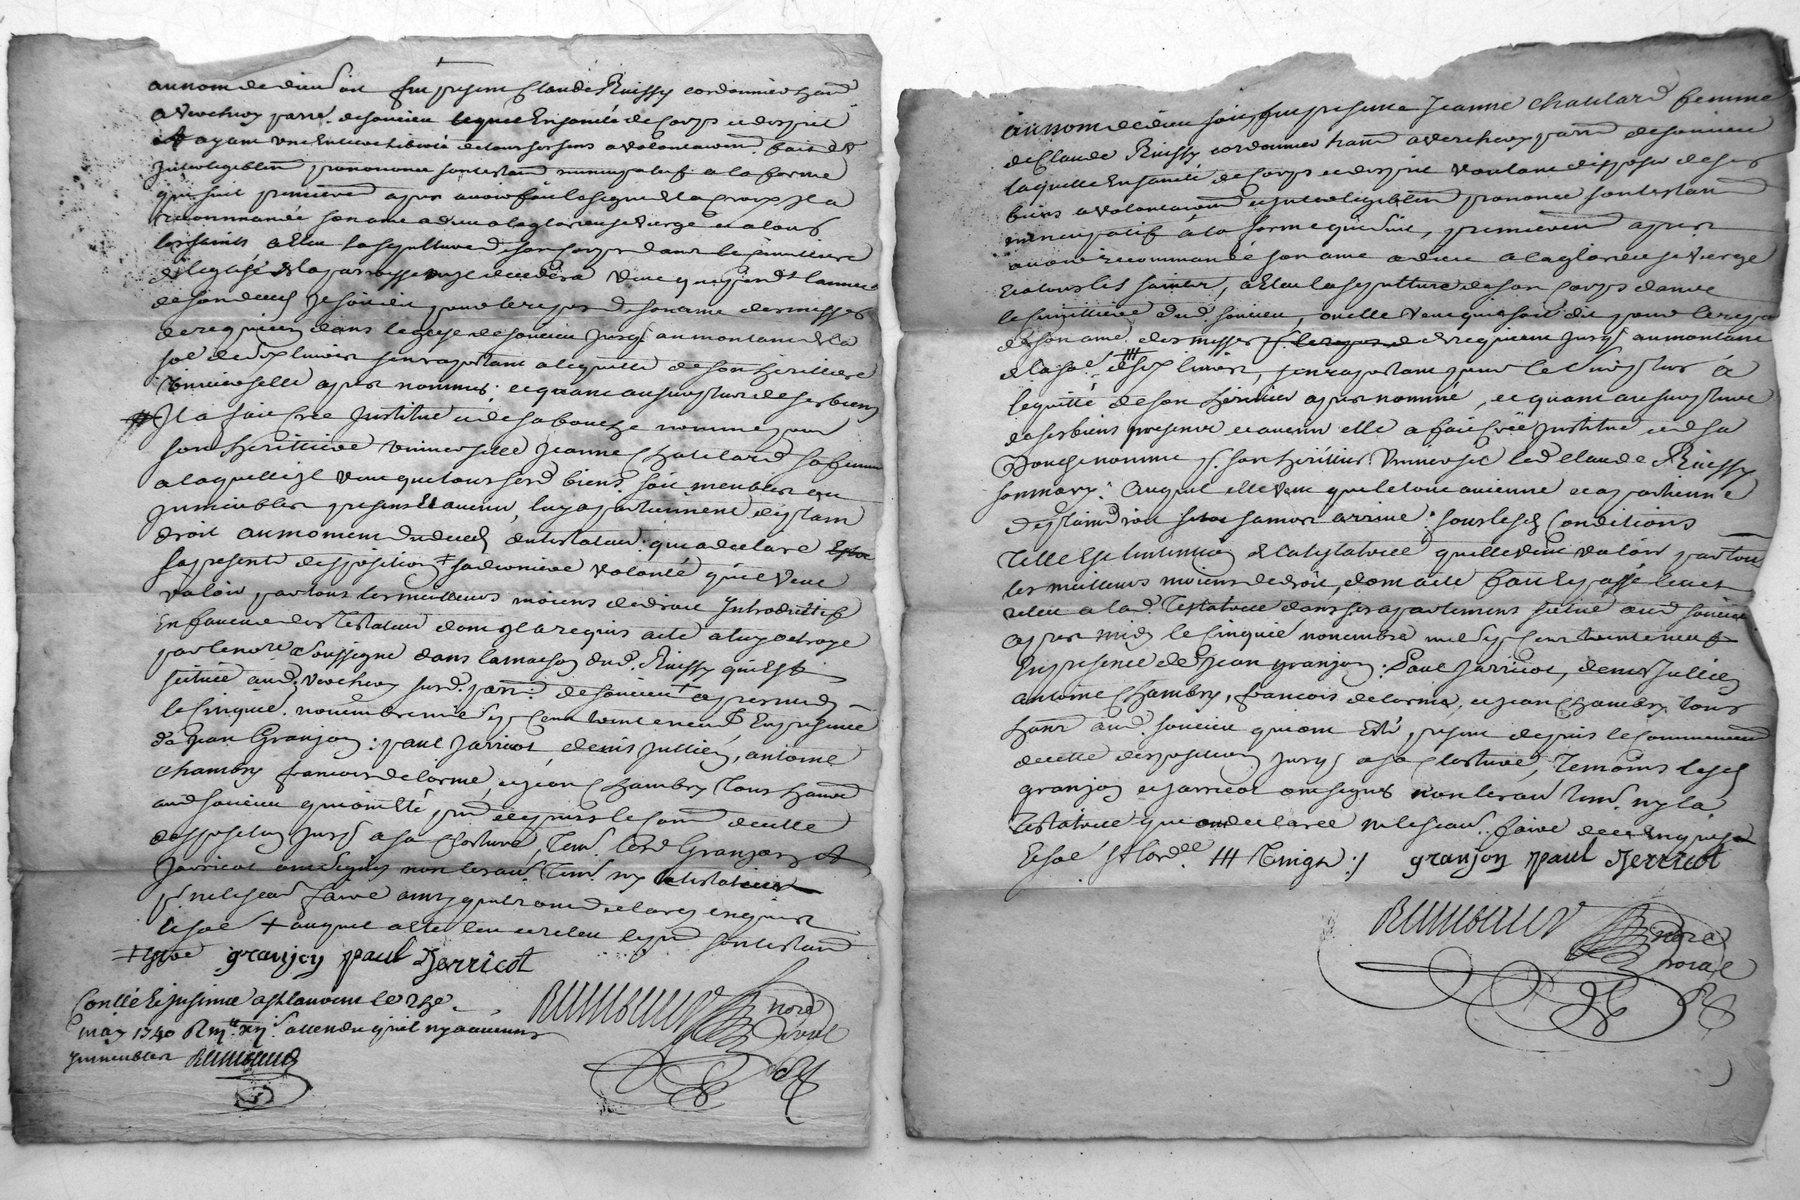 au nom de dieu soit fut present Claude Ruissy cordonnier hant
a Verchery parr. de soucieu lequel En santé de corps et d'esprit
Et ayant une Entiere liberté de tous ses sens a volontairemt fait et
Intelligiblemt prononcé son testamt nuncupatif a la forme
qui suit premierement apres avoir fait le signe de la croix Il a
recommandé son ame a dieu a la glorieuse Vierge et a tous
les saints a Elu la sepulture de son corps dans le cimitiere
de l'eglise de la parroisse ou Il decedera Veut que pendt l'année
de son deceds Il soit dit pour le repos de son ame des messes
de requiem dans l'eglise de soucieu jusqs au montant de la
so͠e de dix livres s'en raportant a l'equitté de son heritiere
Universelle apres nommée; et quant au surplus de ses biens
Il a fait créé Institué et de sa bouche nommé pour
son heritiere universelle Jeanne Chatelard sa femme
a laquelle il veut que tous sesd biens soit meubles ou
Immeubles presents Et avenir, luy apartiennent de plain
droit au moment du deceds du testateur: qui a declaré
la presente disposition + sa derniere volonté qu'il Veut
valoir par tous les meilleurs moiens de droit Introduits
En faveur des Testateurs dont Il a requis acte a luy octroyé
par le nore soussigné dans la maison dud. Ruissy qui Est
située aud. Verchery surd. parr. de soucieu apres midy
le cinquie. novembre mil sept cent trente neuf En presence
de Jean Granjon: paul Jarricot, denis Jullien, antoine
Chambry françois delorme, et Jean Chambry tous hants
aud soucieu qui ont Eté pnt depuis le com͠t de cette
disposition jusqs a sa Closture, Tem. lesd Granjon et
Jarricot ont signés non les aut. Tem. ny le testateur
pr ne le scavoir faire ainsy qu'ils ont declaré enquis et
+ auquel a Eté leu et releu le pnt son testamt
+ Estre granjon paul Jerricot
Conllé Et Insinué a St laurent le
may 1740 attendu qu'il ny a aucuns
Immeubles
nore
royal
au nom de dieu soit, fut presente Jeanne Chatelard femme
de Claude Ruissy cordonnier hant a Verchery parr. de soucieu
laquelle En santé de corps et d'esprit voulant disposer de ses
biens a volontairemt et Intelligiblemt prononcé son testamt
nuncupatif á la forme qui suit, premieremt apres
avoir recommandé son ame a dieu a la glorieuse Vierge
et a tous les saints, a Elu la sepulture de son corps dans
le cimittiere dud. soucieu, ou elle Veut qu'il soit dit pour le repos
de son ame des messes de requiem jusqs au montant
de la so͠e de dix livres, s'en raportant pour le surplus á
l'equitté de son heritier apres nommé, et quant au surplus
de ses biens presents et avenir elle a fait créé Institué et de sa
Bouche nommé pr. son heritier Universel led Claude Ruissy
son mary: Auquel elle veut que le tout avienne et apartienne
de plain droit sa mort arrivée: sous lesd Conditions
Telle Est l'intention de la testatrice qu'elle veut valoir par tous
les meilleurs moiens de droit, dont acte fait Et passé leu et
releu a lad. Testatrice dans ses apartements situés aud soucieu
apres midy le cinquie novembre mil sept cent trente neuf
En presence de Jean granjon: Paul Jarricot, denis Jullien
antoine Chambry, françois delorme, et Jean Chambry tous
hants aud. soucieu qui ont Eté, present depuis le commencemt
de cette disposition jusqs a sa Closture, Temoins lesd
granjon et Jarricot ont signés non les aut. tem. ny la
Testatrice qui ont declaré ne le scav. faire de ce Enquise
granjon paul Jerricot
nore
royal